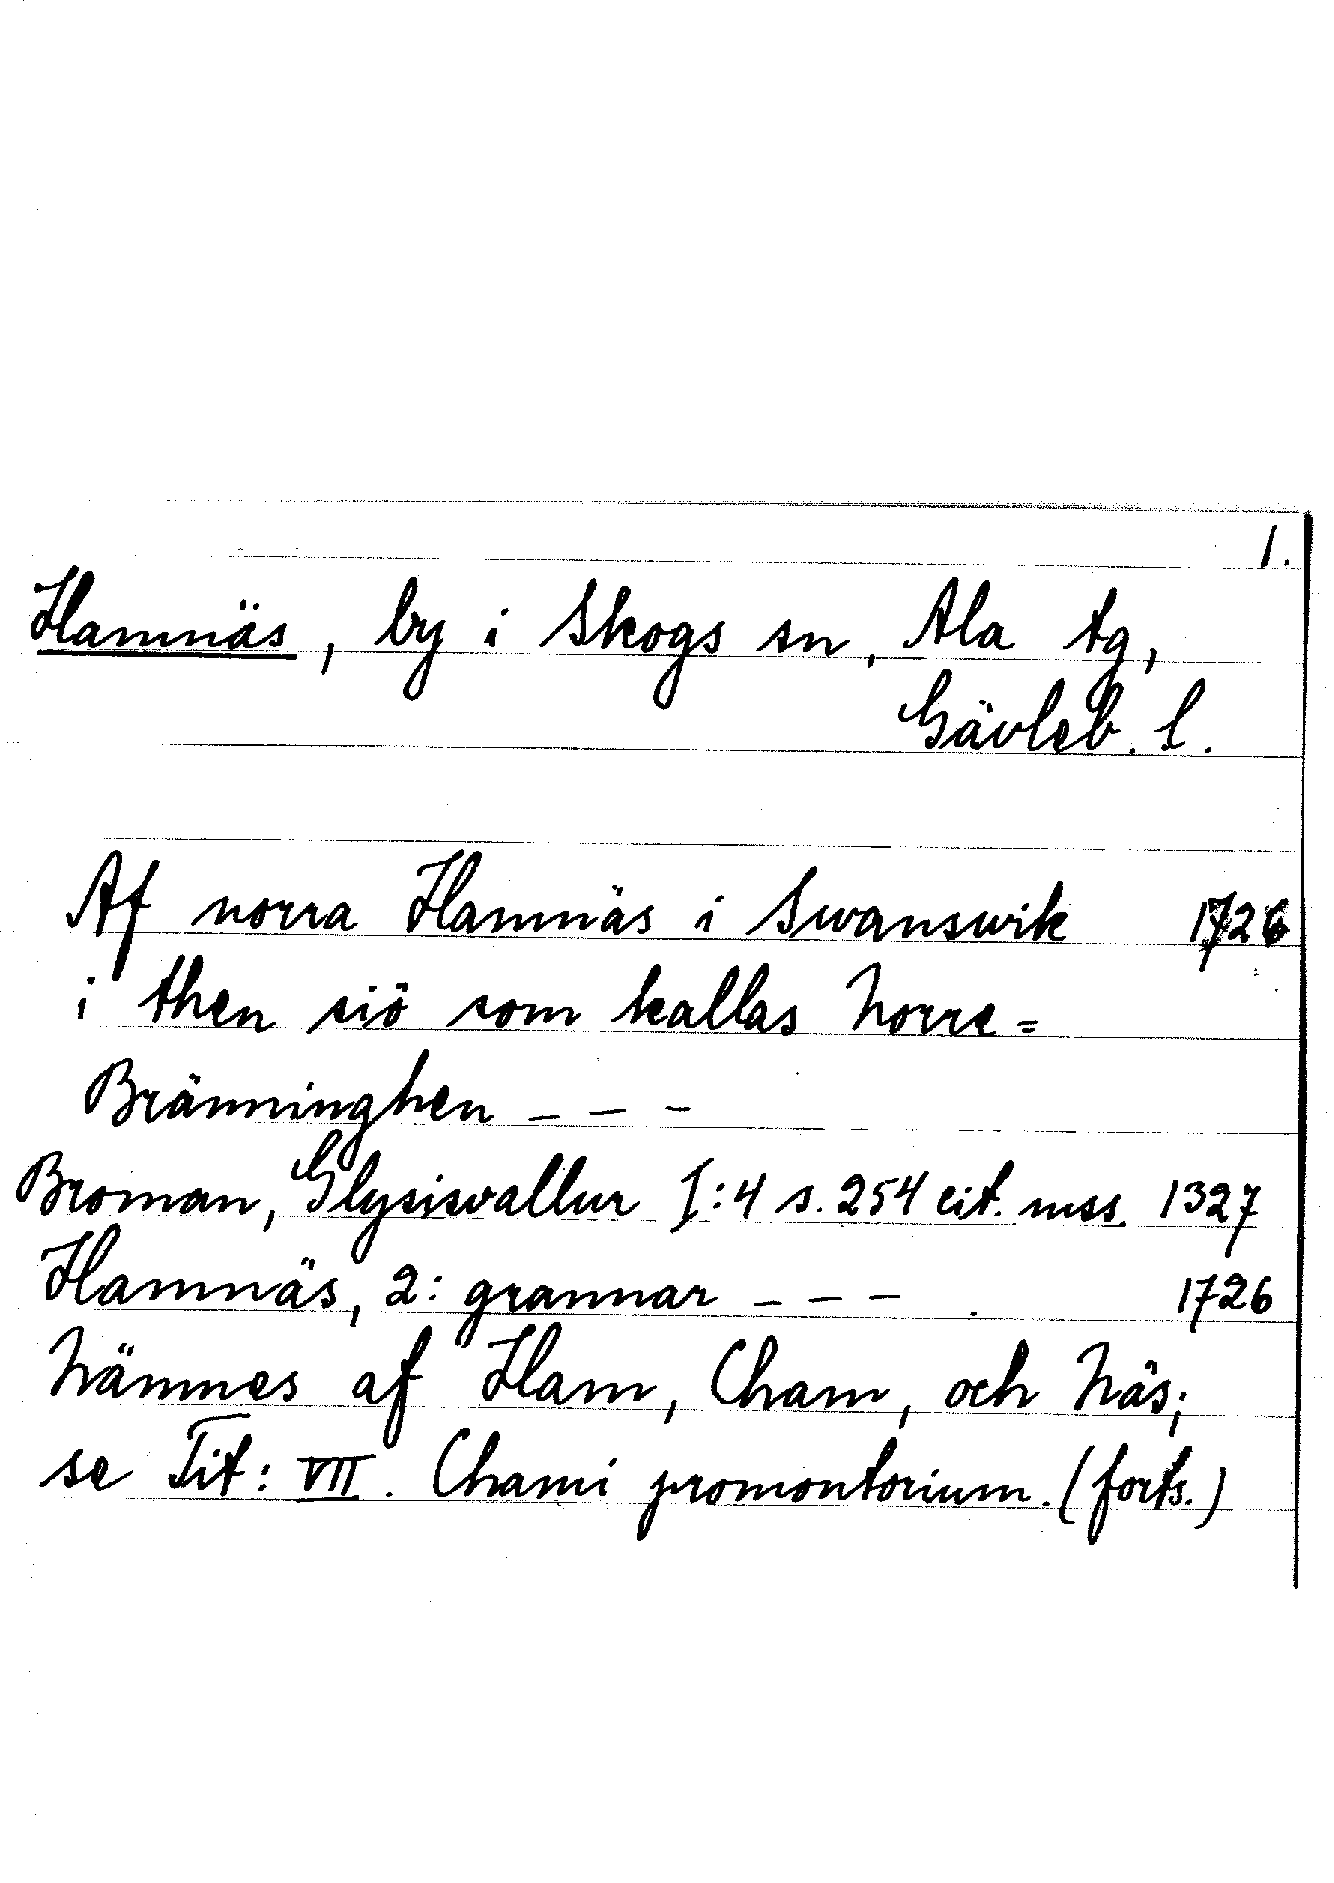 1.
Hamnäs, by i Skogs sn, Ala tg,
Gävleb. l.
Af norra Hamnäs i Swanswik 1726
i then siö som kallas Norre=
Bränninghen - - -
Broman, Glysisvallur I:4 s. 254 cit. mss. 1327
Hamnäs, 2: grannar - - - 1726
Nämnes af Ham, Cham, och Näs;
se Tit: VII. Chami promontorium. (forts.)